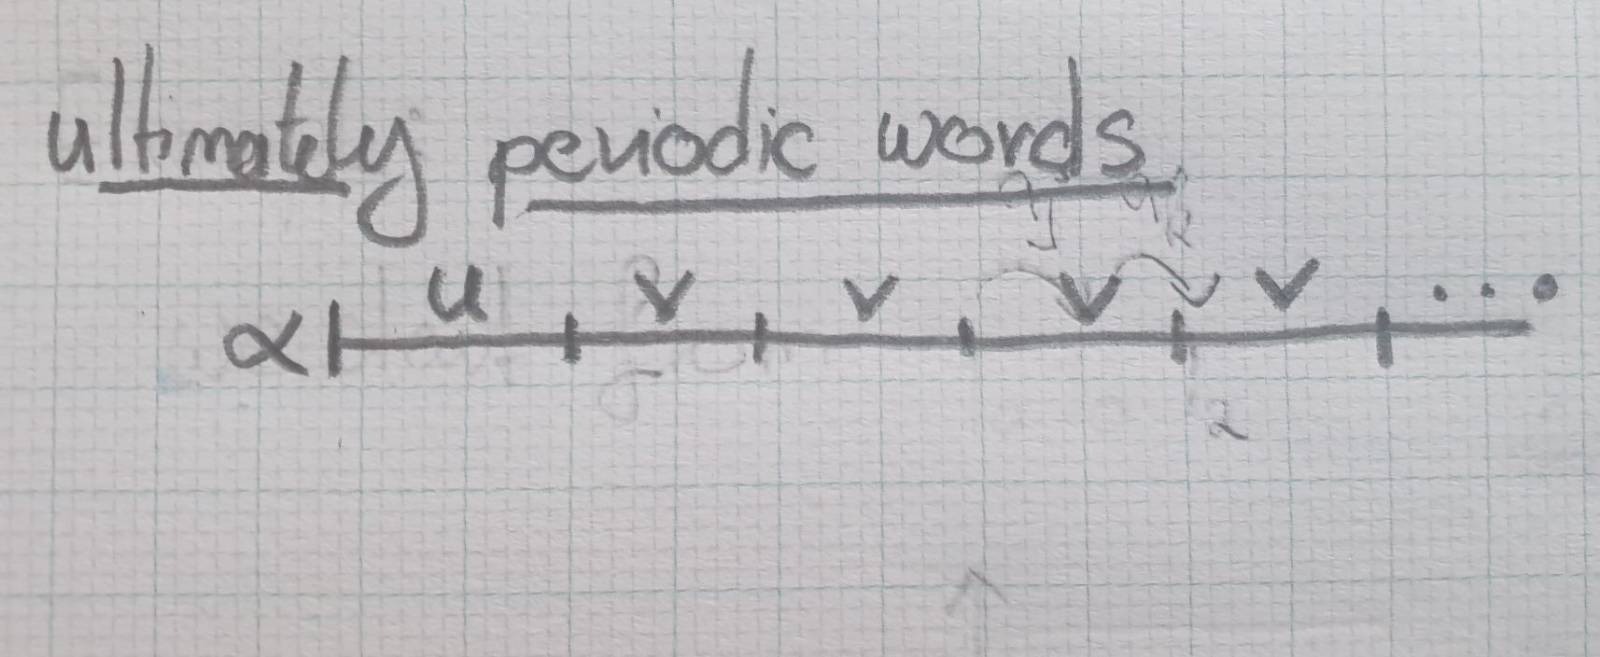 ultimately periodic words
α u v v v v ...